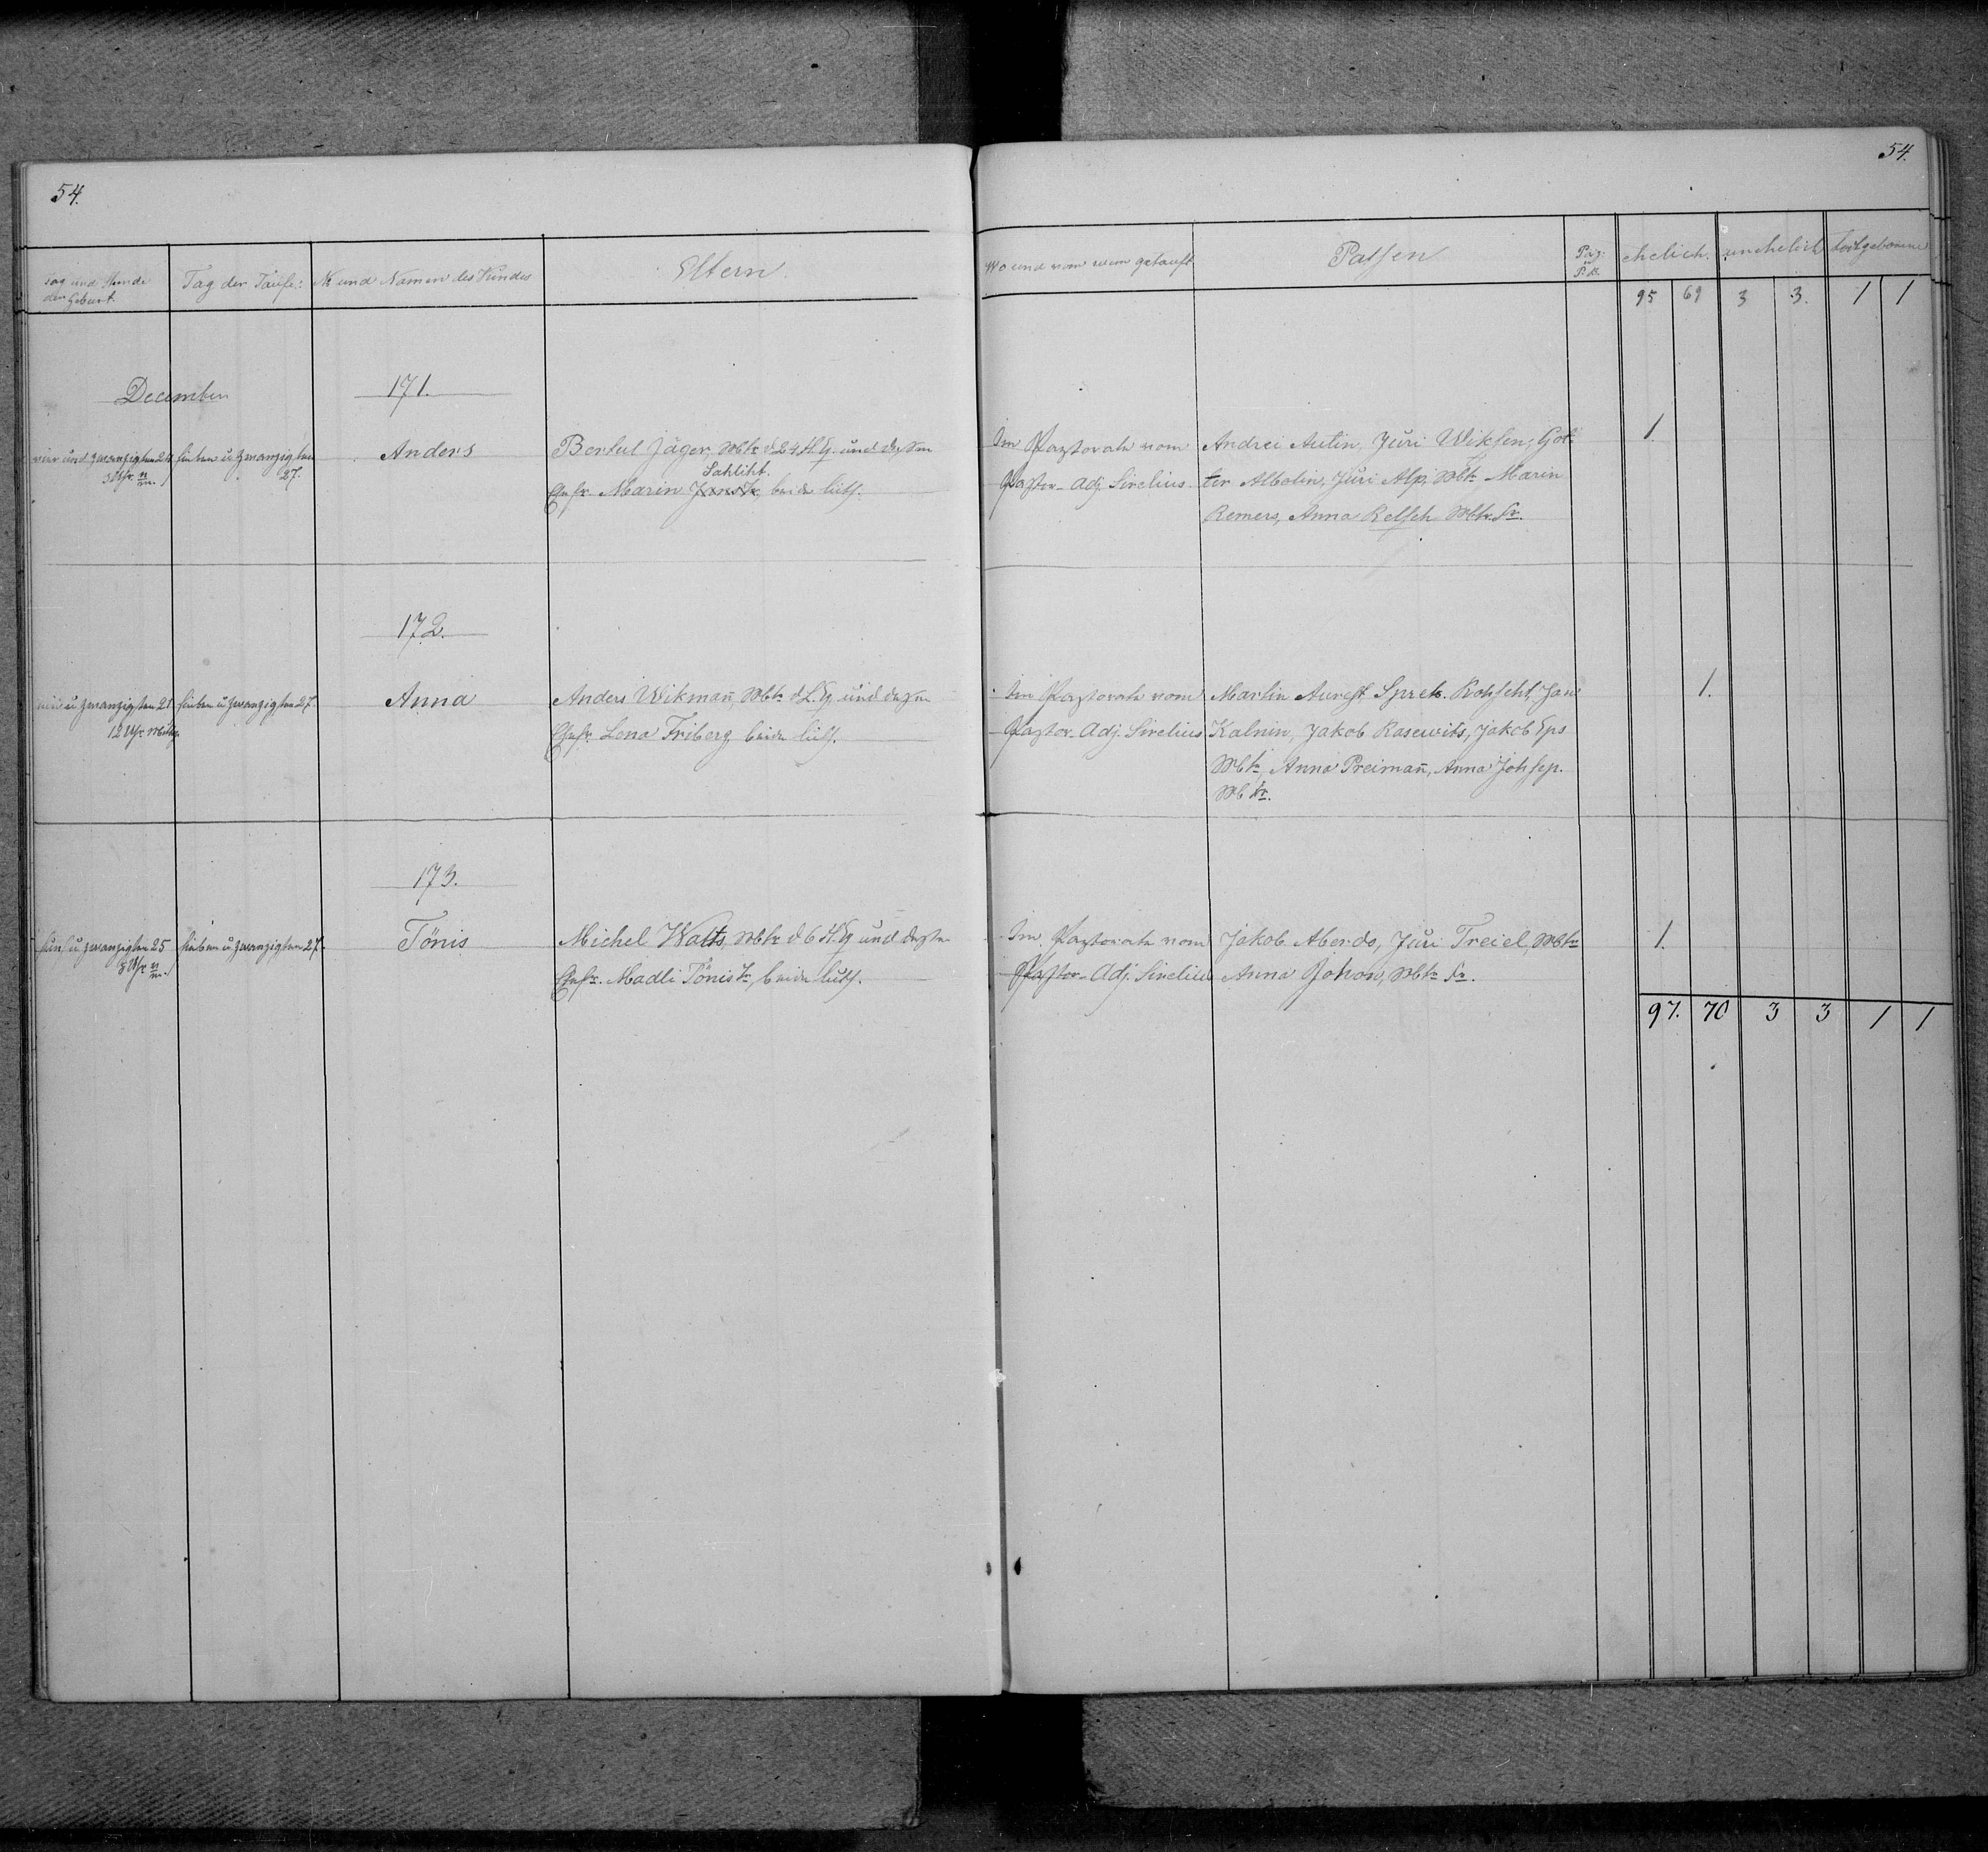 54.
54.
Tag und Stunde der Geburt
Tag der Taufe:
№ und Namen des Kindes
Eltern.
Wo und von wem getauft
Pathen
Pag: u P.B.
ehelich.
unehelich
todtgeborene
95 69 3 3. 1 1
December
171.
vier und zwanzigsten 24
3 Uhr n/m.
sieben u zwanzigsten
27.
Anders
Bertul Jäger, Wbtr. d und dessen
Sahliht.
Ehefr. Marin beide luth.
Im Pastorate vom
Pastor-Adj. Sirelius.
Andrei Autin, Jüri Wiksen, Got-
ter Albolin, Jüri Alp, Wbtr Marin
Remers, Anna Relsch Wbtr. Fr.
1.
172.
u zwanzigsten
12 Uhr Mittg.
sieben u zwanzigsten 27.
Anna
Anders Wikmañ, Wbtr d L. und dessen
Ehefr. Lena Friberg, beide luth.
Im Pastorate vom
Pastor-Adj. Sirelius
Martin Aurest, Sprek. Jan
Kalnin, Jakob Rasewits, Jakob Eps
Wbtr, Anna Preimañ, Anna Johsep.
Wb Fr.
1.
173.
fünf u zwanzigsten 25
Uhr n/m.
sieben u zwanzigsten 27.
Tönis
Michel Walts, Wbtr d 6 und dessen
Ehefr. Madli Tönis Tr, beide luth.
Im Pastorate vom
Pastor-Adj. Sirelius
Jakob Aberdo, Jüri Treiel, Wbtr
Anna Johow, Wbtr Fr.
1.
97. 70 3 3 1 1